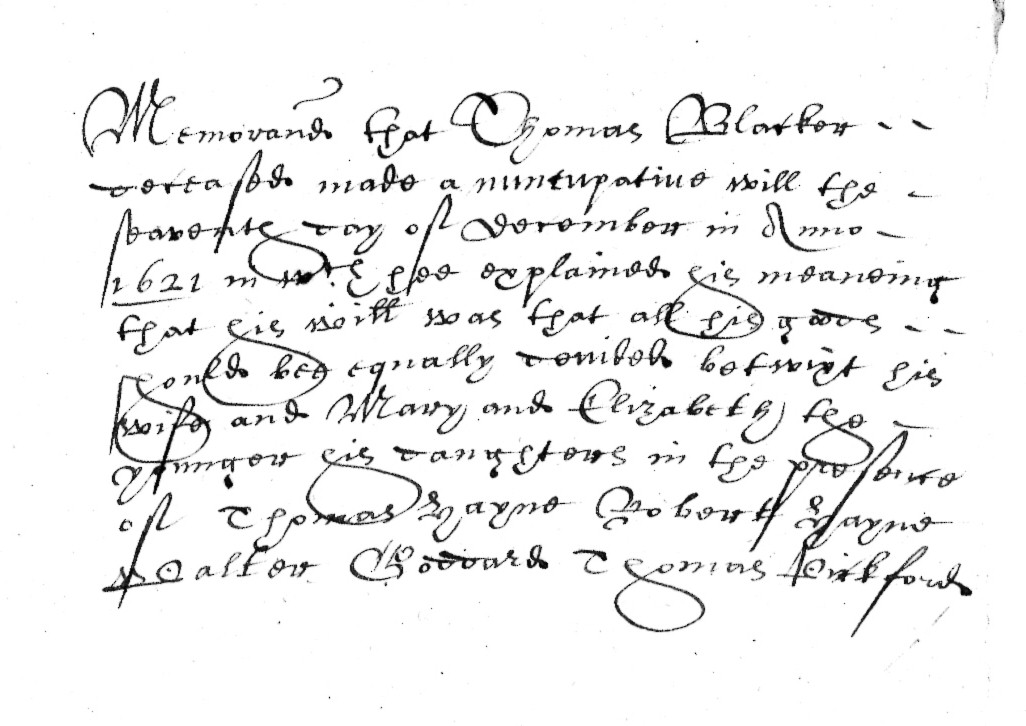 Memorand that Thomas Blacker - -
deceased made a nuncupative will the -
seaventh day of December in Anno -
1621 in wch hee explained his meaneing
that his will was that all his goods - -
should bee equally devided betwixt his
wife and Mary and Elizabeth the -
younger his daughters in the presence
of Thomas Hayne Robert Hayne
Walter Goddard Thomas Pickford